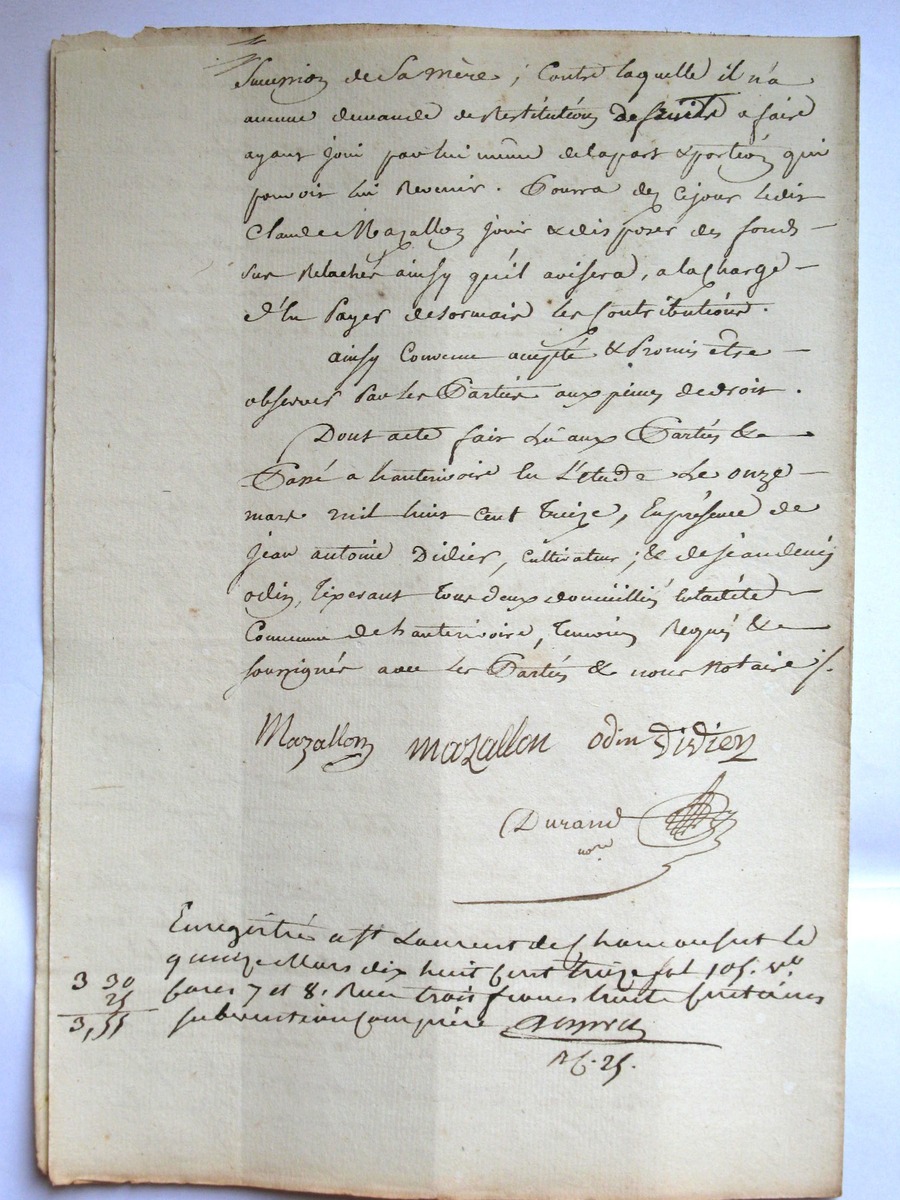 succession de Sa mère ; Contre laquelle il n'a
aucune demande de Restitution de fruits a faire
ayant Joui par lui même de la part & portion qui
pouvoit lui Revenir. Pourra dez ce jour ledit
Claude Mazallon Jouir & disposer des fonds
sus Relachés ainsy qu'il avisera, a la charge
d'en Payer desormais les Contributions.
ainsy Convenu accepté & Promis être
observer Par les Parties aux peines de droit.
Dont acte fait Lû aux Parties &
Passé a hauterivoire En L'étude Le onze
mars mil huit Cent treize, En présence de
Jean antoine Didier, Cultivateur ; & de Jean denis
odin, tixerant tous deux domiciliés En ladite
Commune de hauterivoire, temoins Requis &
soussignés avec Les Parties & nous Notaire /.
Mazallon mazallon odin Didier
Durand
nore
Enregistré a St Laurent de Chamousset le
quinze Mars dix huit Cent treize fol 105. vo
Cases 7 et 8. Reçu trois francs trente Centimes
subvention Comprise
3 30
25
3,55
R f. 25.